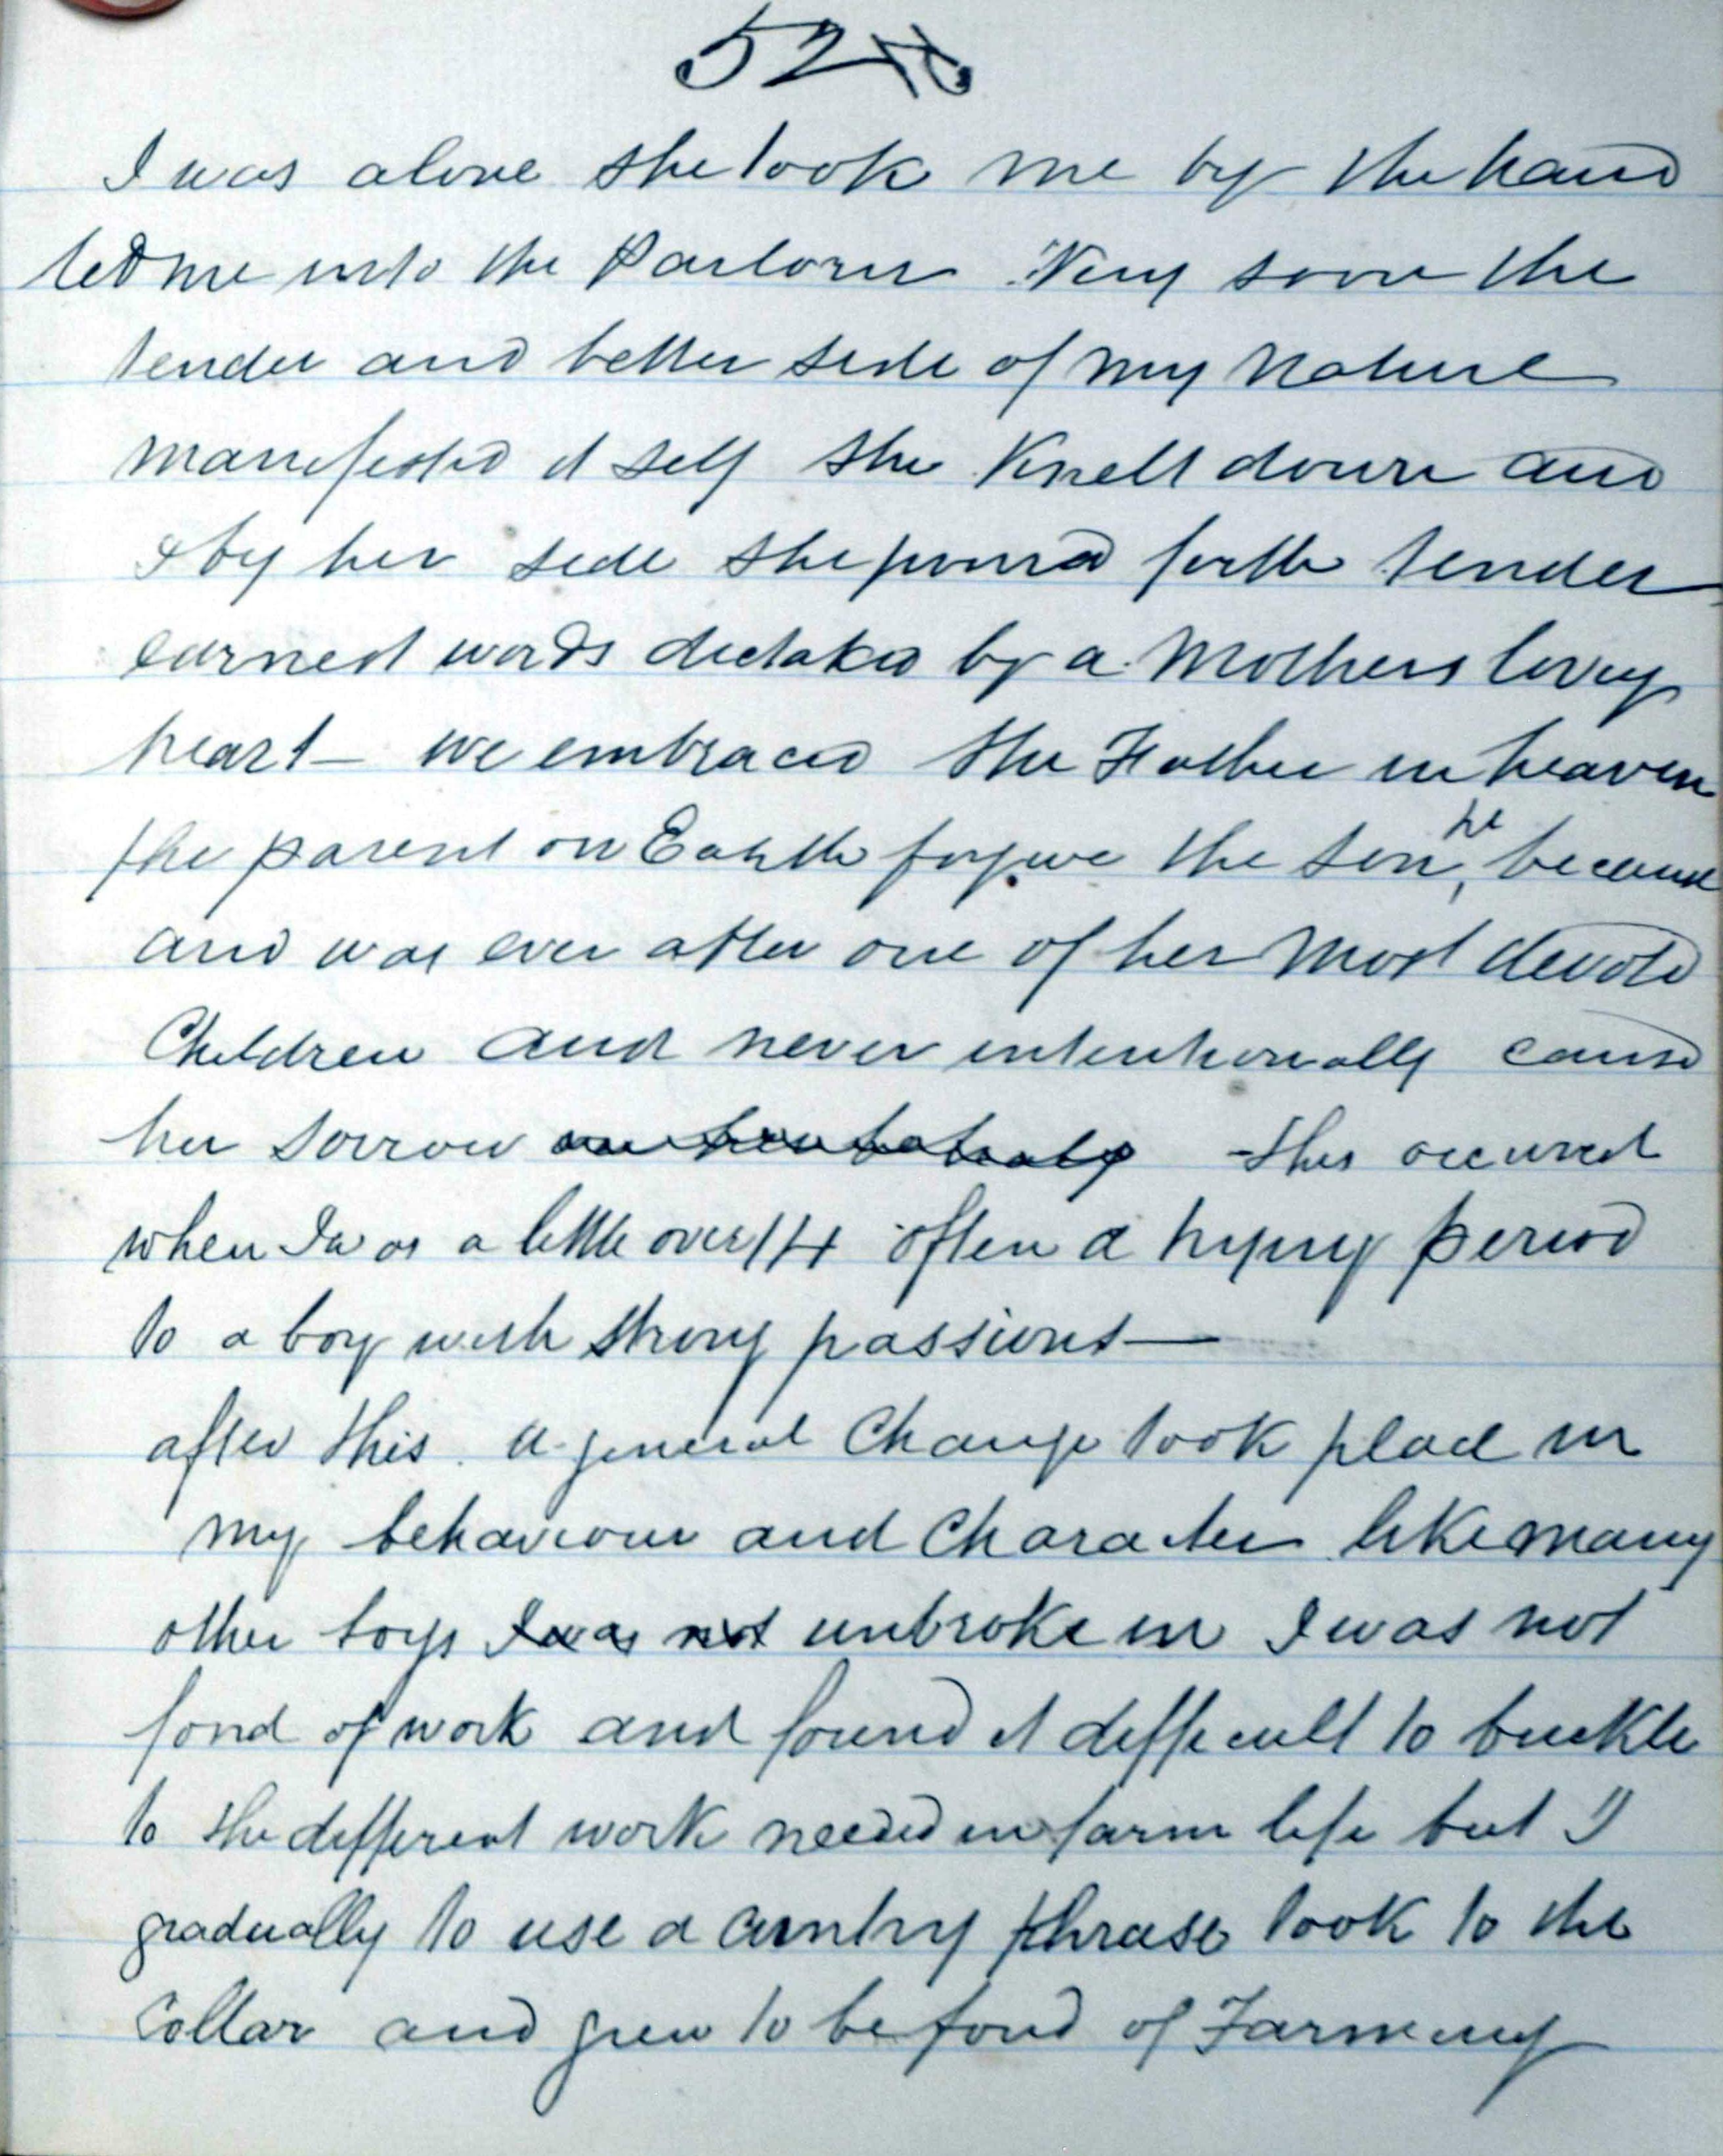 52
I was alone she took me by the hand
led me into the Parlour Very soon the
tender and better side of my nature
manifested it self she Knelt down and
I by her side she pourd forth tender
earnest words dictated by a Mothers loving
heart — we embraced the Father in heaven
the parent on Earth forgive the son, he became
and was ever after one of her most devoted
Children and never intentionally causd
her sorrow this occurred
when I was a little over 14 often a trying period
to a boy with strong passions —
after this a general Change took place in
my behaviour and Character like many
other boys I was not unbroke in I was not
fond of work and found it difficult to buckle
to the different work needed in farm life but I
gradually to use a cuntry phrase took to the
Collar and grew to be fond of Farming